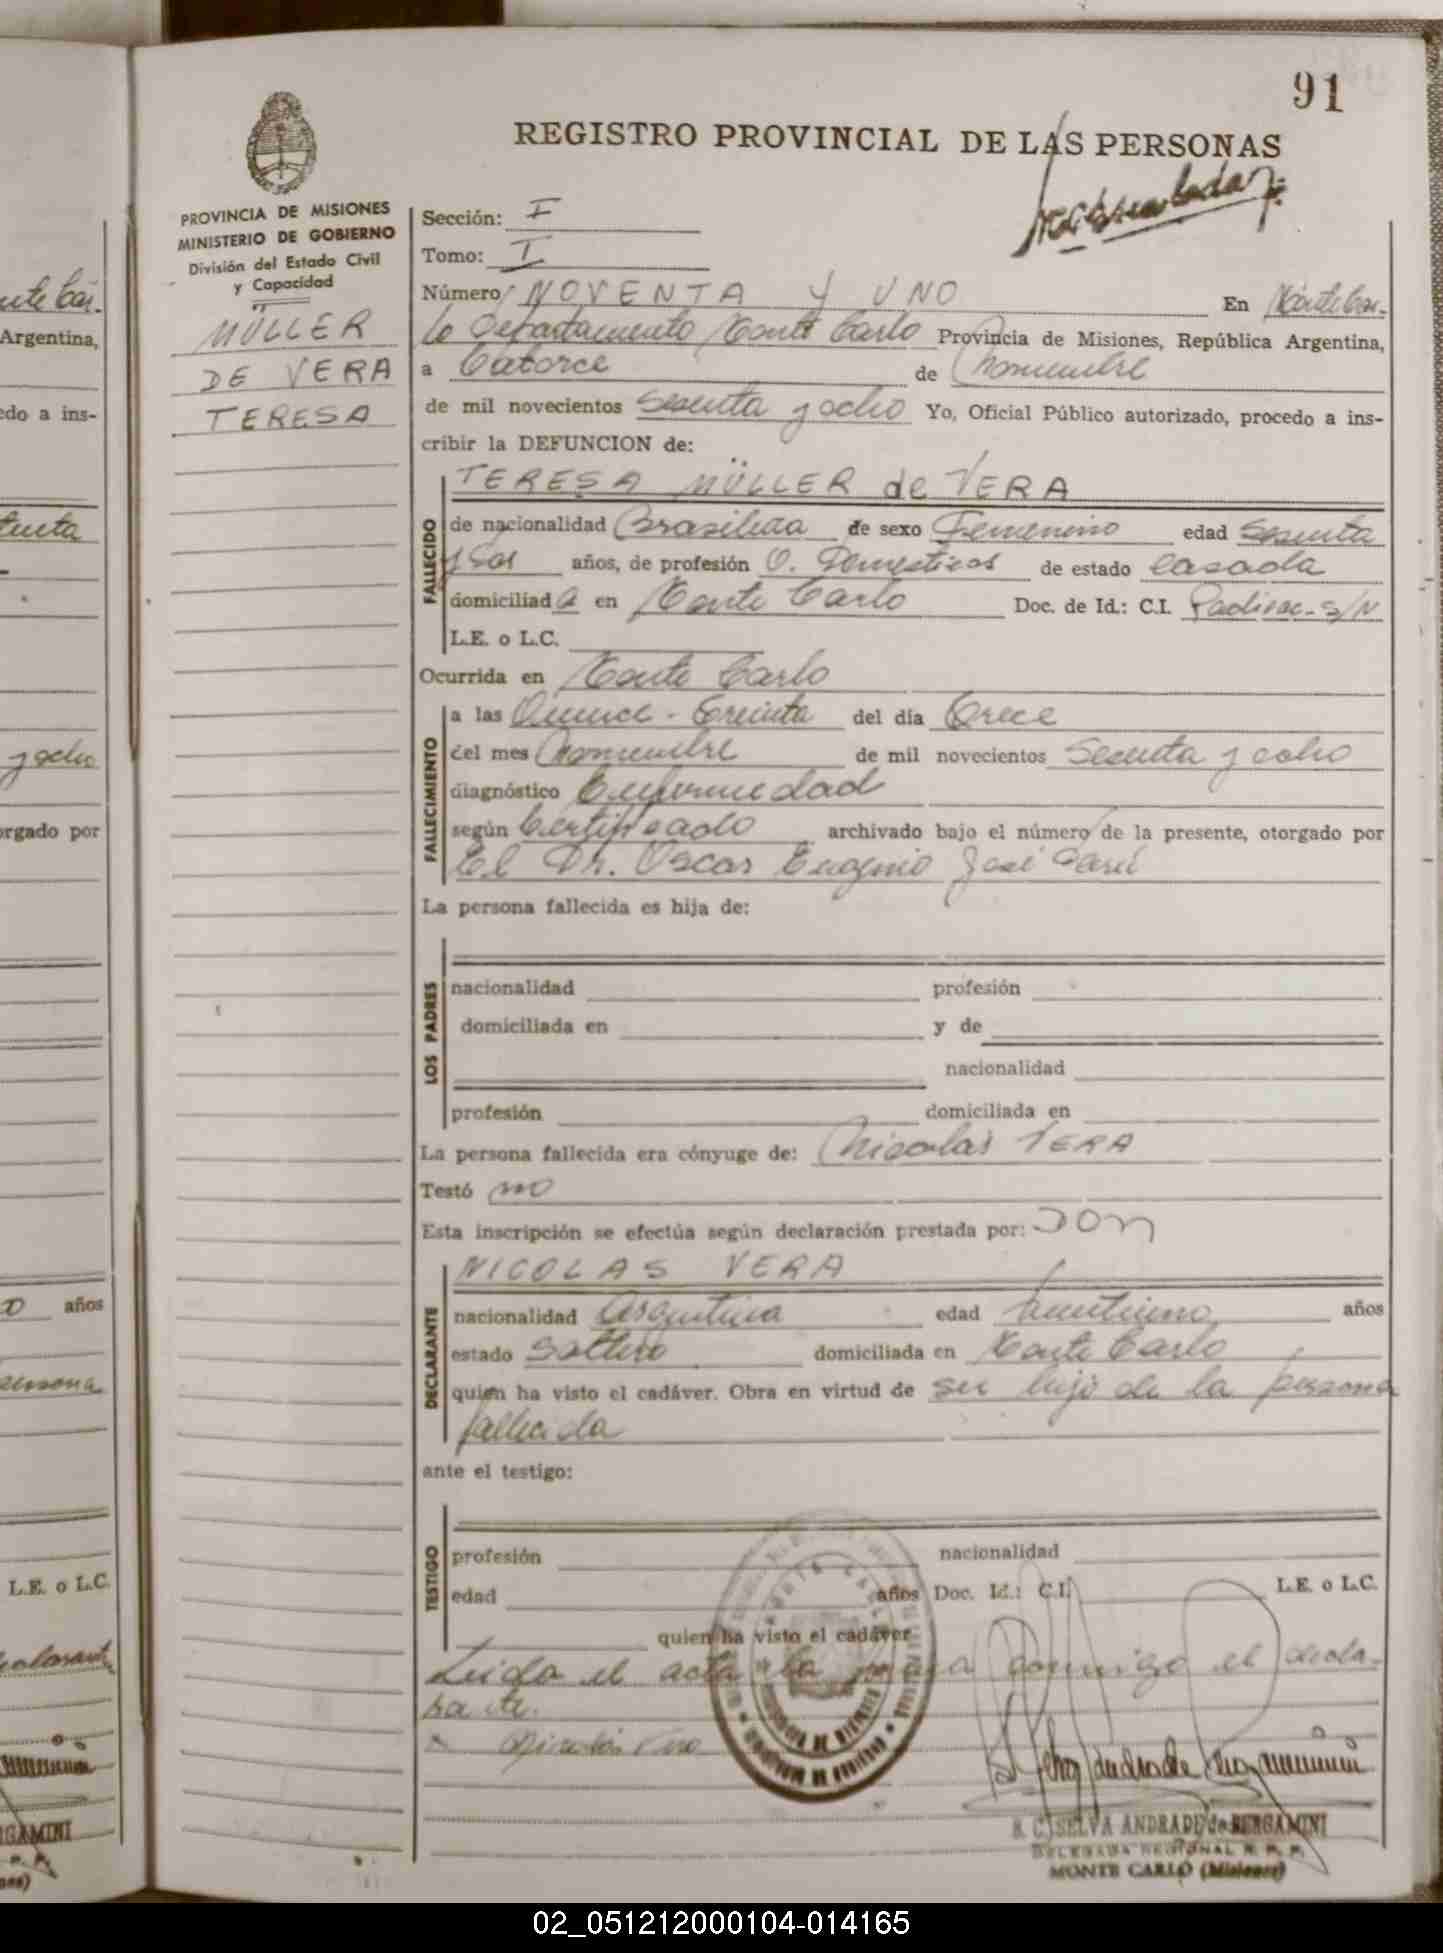 91
REGISTRO PROVINCIAL DE LAS PERSONAS
PROVINCIA DE MISIONES
MINISTERIO DE GOBIERNO
División del Estado Civil
y Capacidad
MÜLLER
DE VERA
TERESA
Sección: I
Tomo: I
Número NOVENTA Y UNO En Monte Car-
lo Departamento Monte Carlo Provincia de Misiones, República Argentina,
a Catorce de Noviembre
de mil novecientos Sesenta y ocho Yo, Oficial Público autorizado, procedo a ins-
cribir la DEFUNCION de:
TERESA MÜLLER de VERA
FALLECIDO
de nacionalidad Brasileña de sexo Femenino edad Sesenta
y dos años, de profesión Q. Domesticos de estado casada
domiciliada en Monte Carlo Doc. de Id.: C.I. S/N
L.E. o L.C.
Ocurrida en Monte Carlo
FALLECIMIENTO
a las Quince - Treinta del día Trece
del mes Noviembre de mil novecientos Sesenta y ocho
diagnóstico Enfermedad
según Certificado archivado bajo el número de la presente, otorgado por
El Dr. Oscar Eugenio José
La persona fallecida es hija de:
LOS PADRES
nacionalidad profesión
domiciliada en y de
nacionalidad
profesión domiciliada en
La persona fallecida era cónyuge de: Nicolás VERA
Testó no
Esta inscripción se efectúa según declaración prestada por: DON
NICOLAS VERA
DECLARANTE
nacionalidad Argentina edad veintiuno años
estado Soltero domiciliada en Monte Carlo
quien ha visto el cadáver. Obra en virtud de ser hijo de la persona
fallecida
ante el testigo:
TESTIGO
profesión nacionalidad
edad años Doc. Id.: C.I. L.E. o L.C.
quien ha visto el cadáver
Leida el acta la firma conmigo el decla-
rante.
x Nicolás Vera
MONTE CARLO
PROVINCIA DE MISIONES
B. C. SELVA ANDRADE de BERGAMINI
DELEGADA REGIONAL R. P. P.
MONTE CARLO (Misiones)
Argentina,
edo a ins-
y ocho
orgado por
años
persona
L.E. o L.C.
02_051212000104-014165